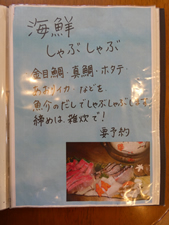 海鮮
しゃぶしゃぶ
金目鯛・真鯛・ホタテ・
あおりイカ などを
魚介のだしでしゃぶしゃぶし
締めは、雑炊で!
要予約